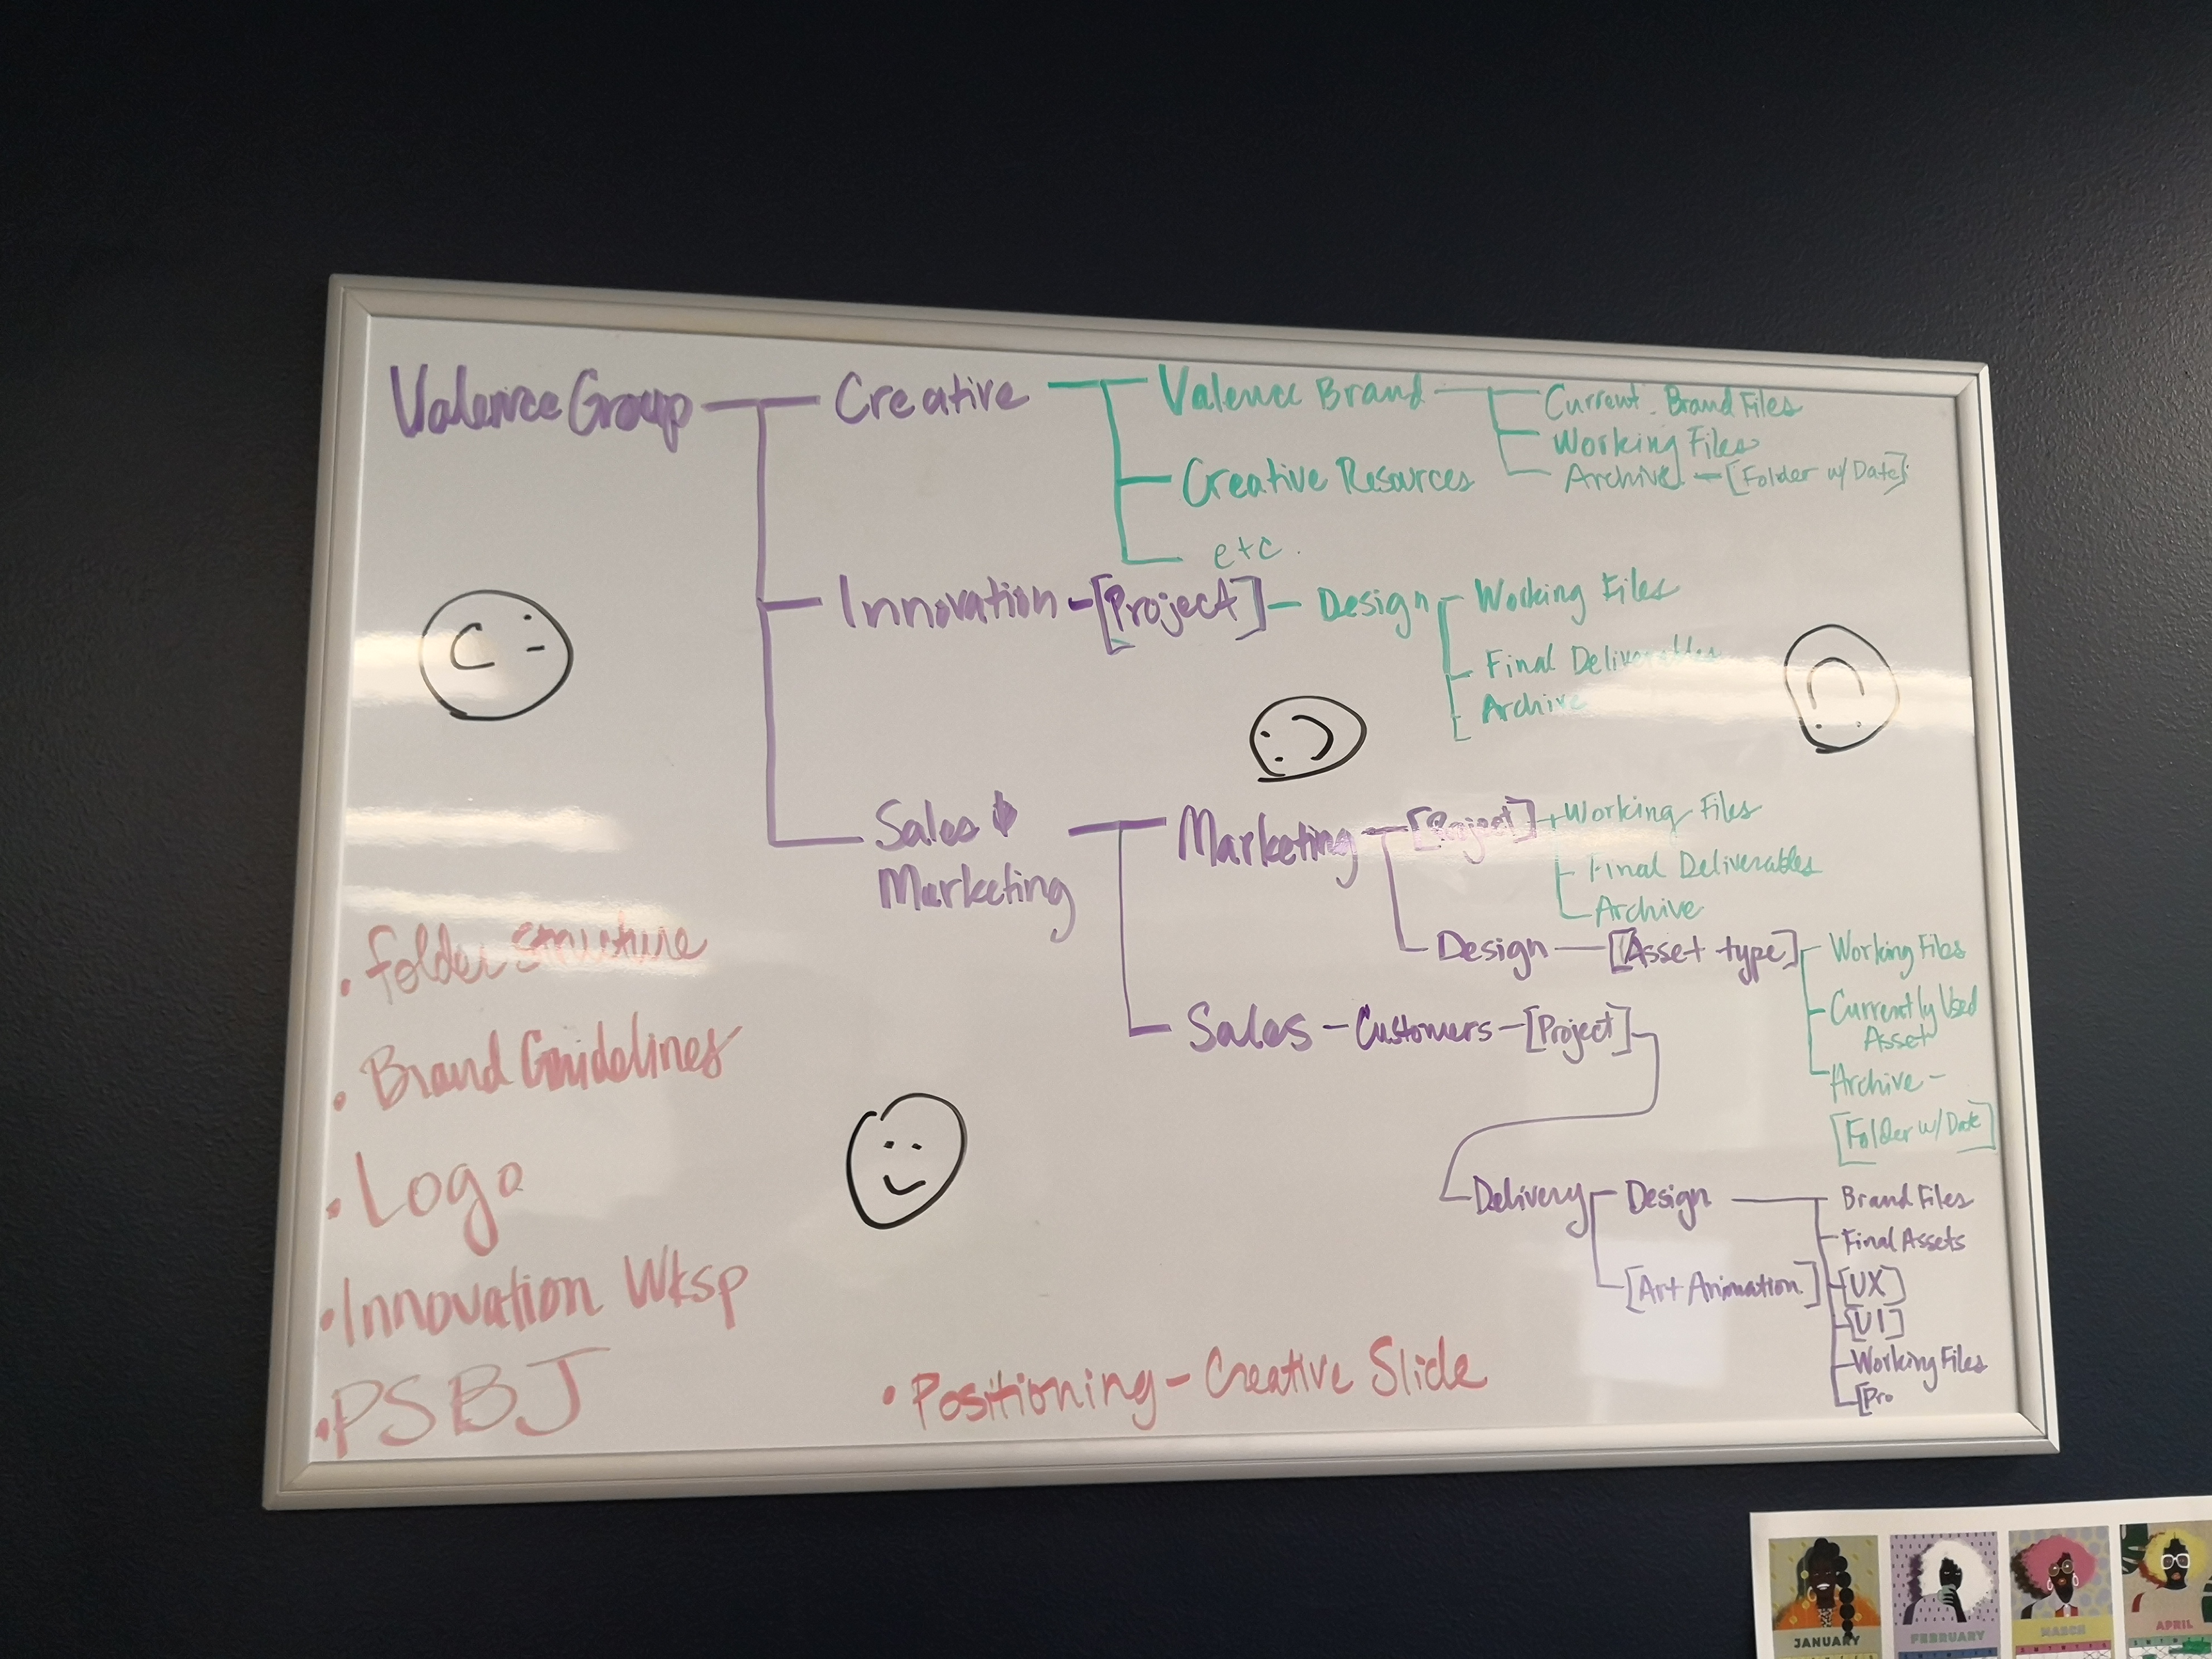 Valence Group
Creative
Valence Brand
Current Brand Files
Working Files
Archive - [Folder w/Date]
Creative Resources
etc.
Innovation - [Project] - Design
Working Files
Final Deliverables
Archive
Sales &
Marketing
Marketing - [Project]
Working Files
Final Deliverables
Archive
Design - [Asset type]
Working Files
Currently Used
Asset
Archive -
[Folder w/Date]
Sales - Customers - [Project]
Delivery
Design
Brand Files
Final Assets
[UX]
[UI]
Working Files
[Pro
[Art Animation]
• Folder structure
• Brand Guidelines
• Logo
• Innovation Wksp
• PSBJ
• Positioning - Creative Slide
JANUARY
FEBRUARY
MARCH
APRIL